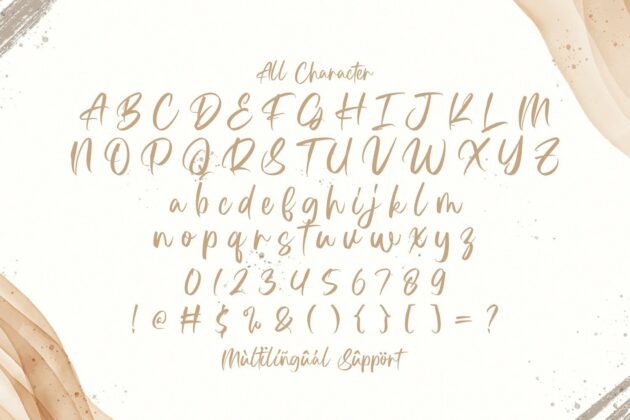 All Character
A B C D E F G H I J K L M
N O P Q R S T U V W X Y Z
a b c d e f g h i j k l m
n o p q r s t u v w x y z
0 1 2 3 4 5 6 7 8 9
! @ # $ % & ( ) { } [ ] = ?
Mùltëlïñgûâl Sûppört